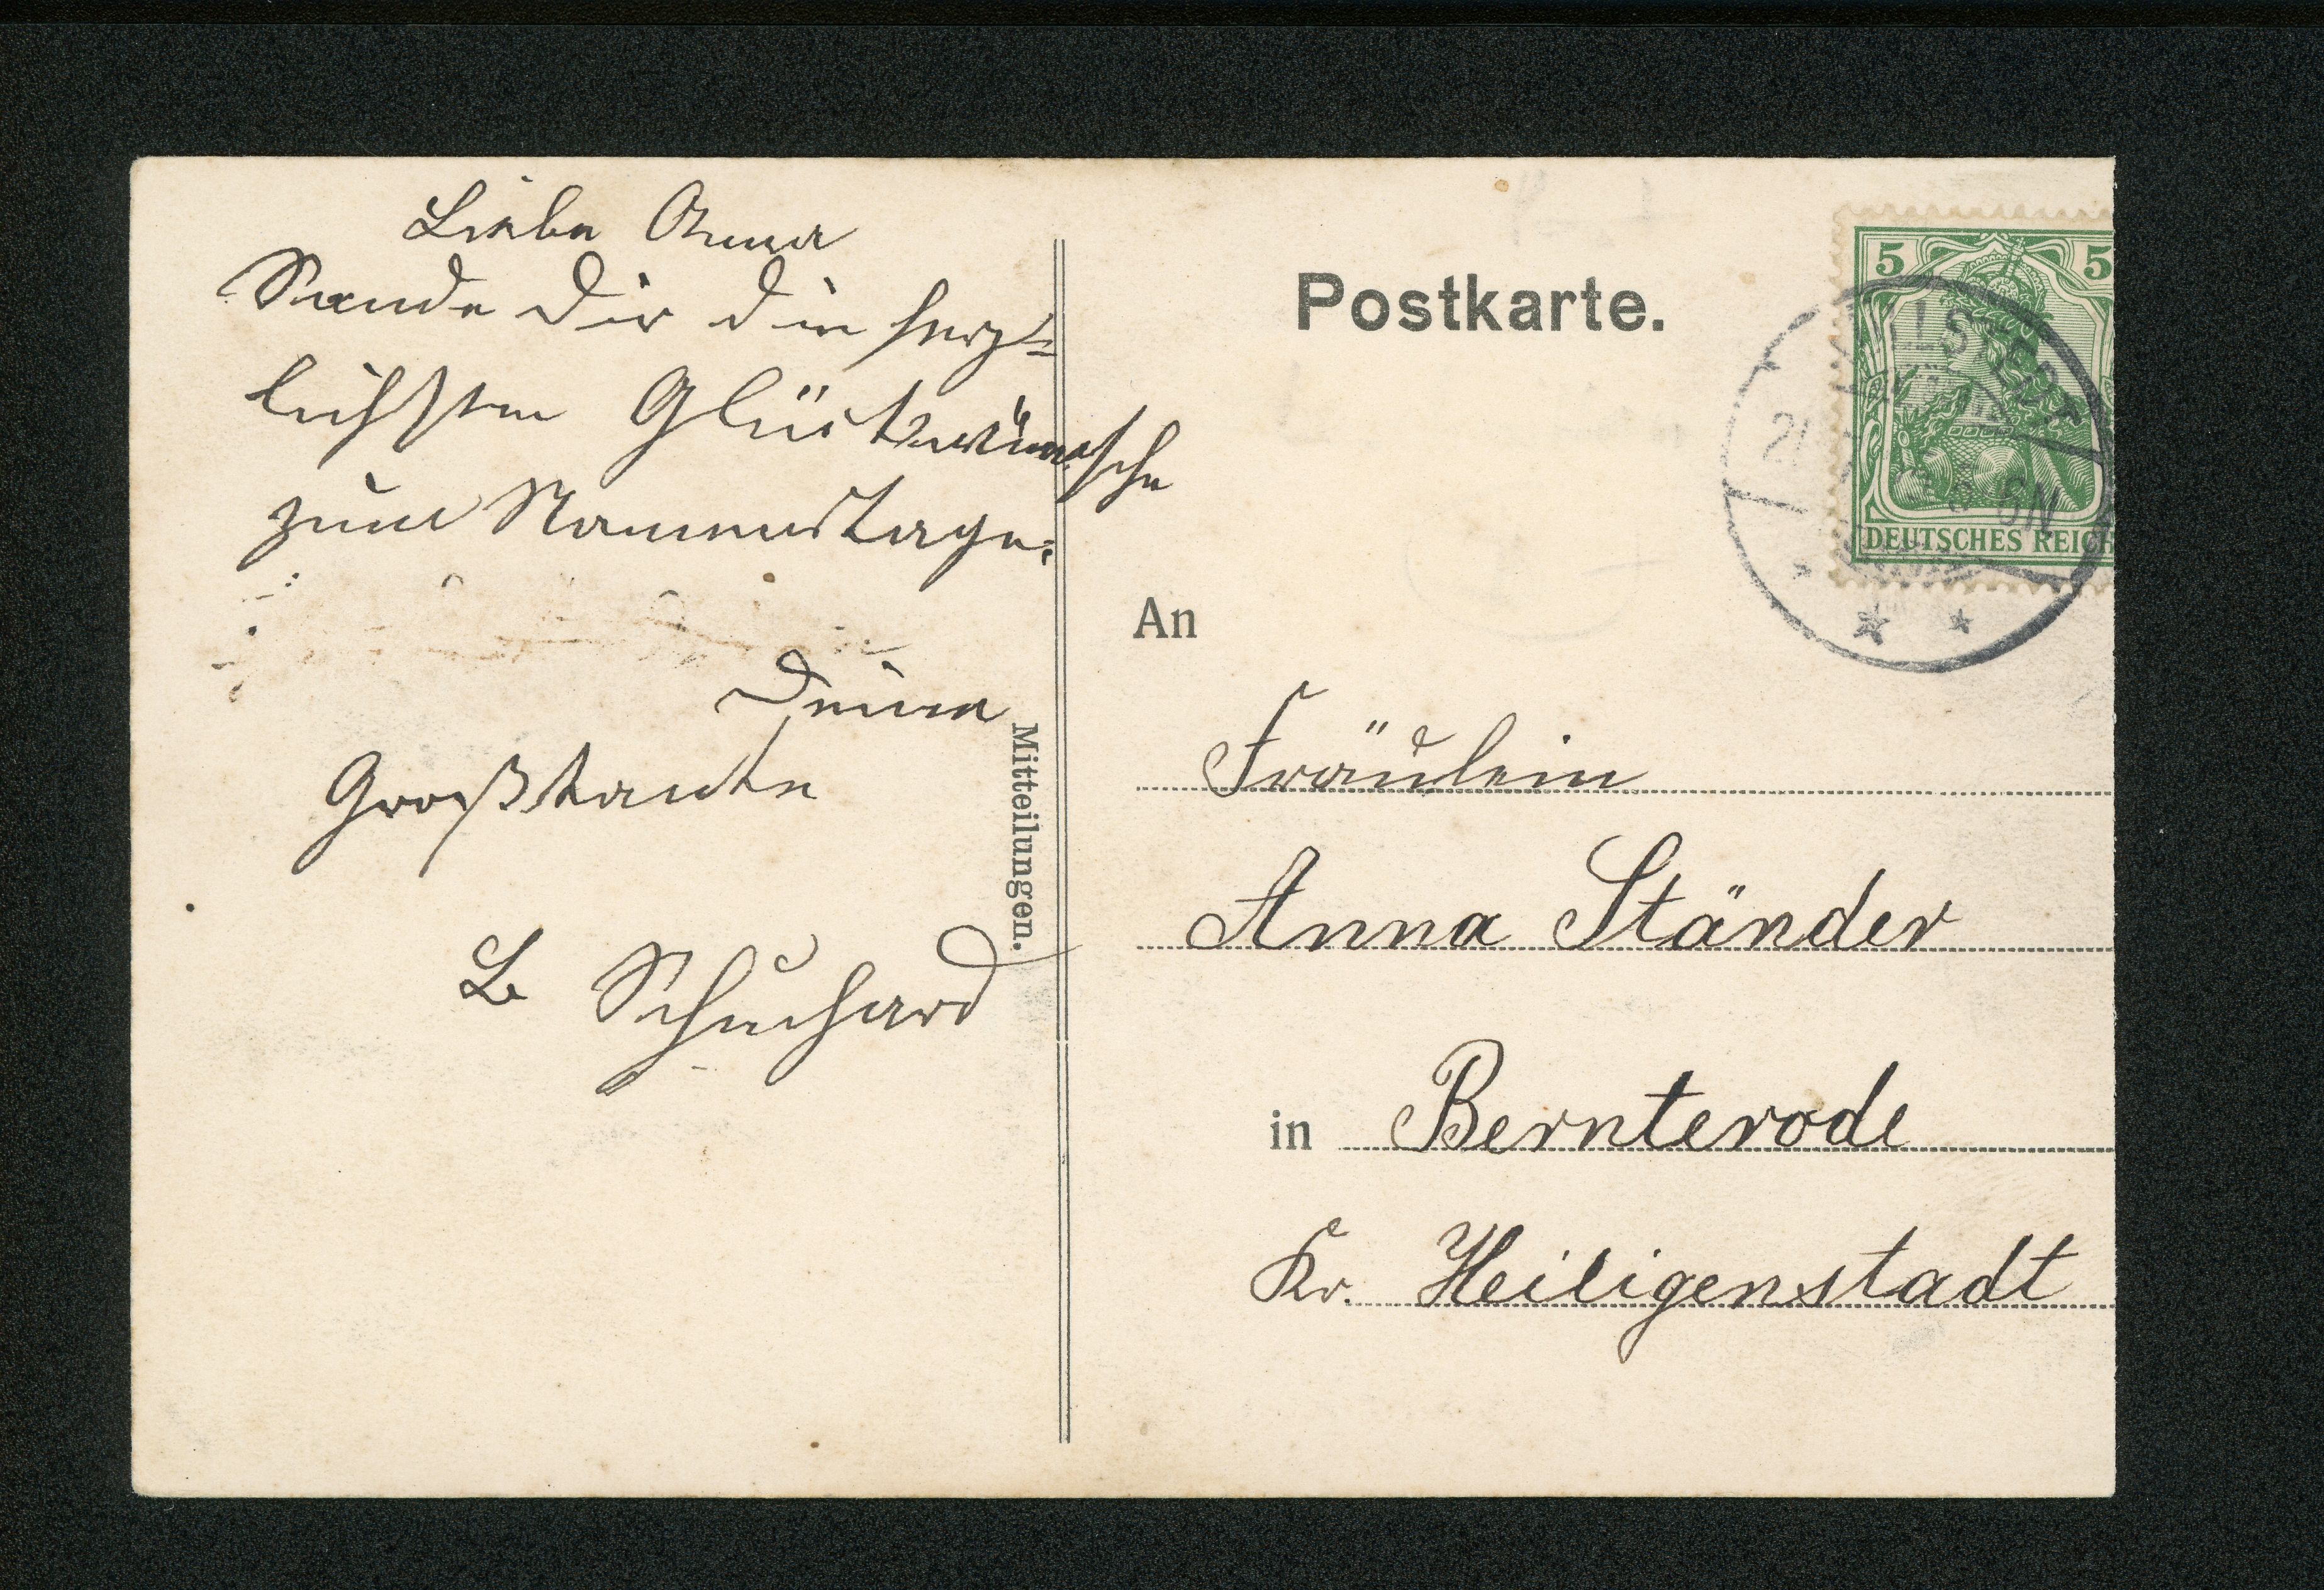 Liebe Anna
Sende Dir die herz-
lichsten Glückwünsche
zum Namenstage.
Deine
Großtante
L Schuchard
Mitteilungen.
Postkarte.
5 5
DEUTSCHES REICH
An
Fräulein
Anna Ständer
in Bernterode
Kr. Heiligenstadt